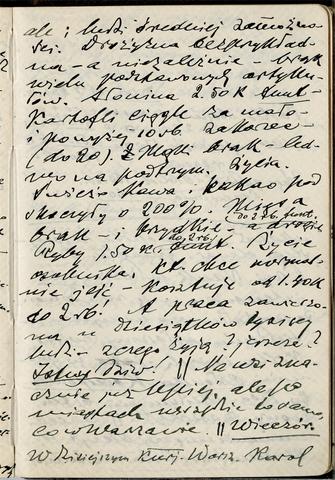 ale i ludzi średniej zamożno-
ści. Drożyzna bezprzykład-
na – a niezależnie – brak
wielu podstawowych artyku-
łów. Słonina 2.50 K funt –
Kartofli ciągle za mało –
i powyżej 10 rb. za korzec –
(do 20). Z Mąki brak – led-
wo na podtrzym. życia.
Świeżo Kawa i kakao pod
skoczyły o 200%. Mięsa
brak – i brzydkie – a drogie do 2 rb. funt.
Ryby 1.50 K. funt. do 2 rb. Życie
człowieka, kt. chce normal-
nie jeść – kosztuje od 1.40 K
do 2 rb. A praca zawieszo-
na u dziesiątków tysięcy
ludzi – z czego żyją? jeszcze?
Istny dziw! || Na wsi zna-
cznie już lepiej, ale po
miastach wszędzie to samo,
co w Warszawie. || Wieczór.
W dzisiejszym Kurj. Warsz. Karol